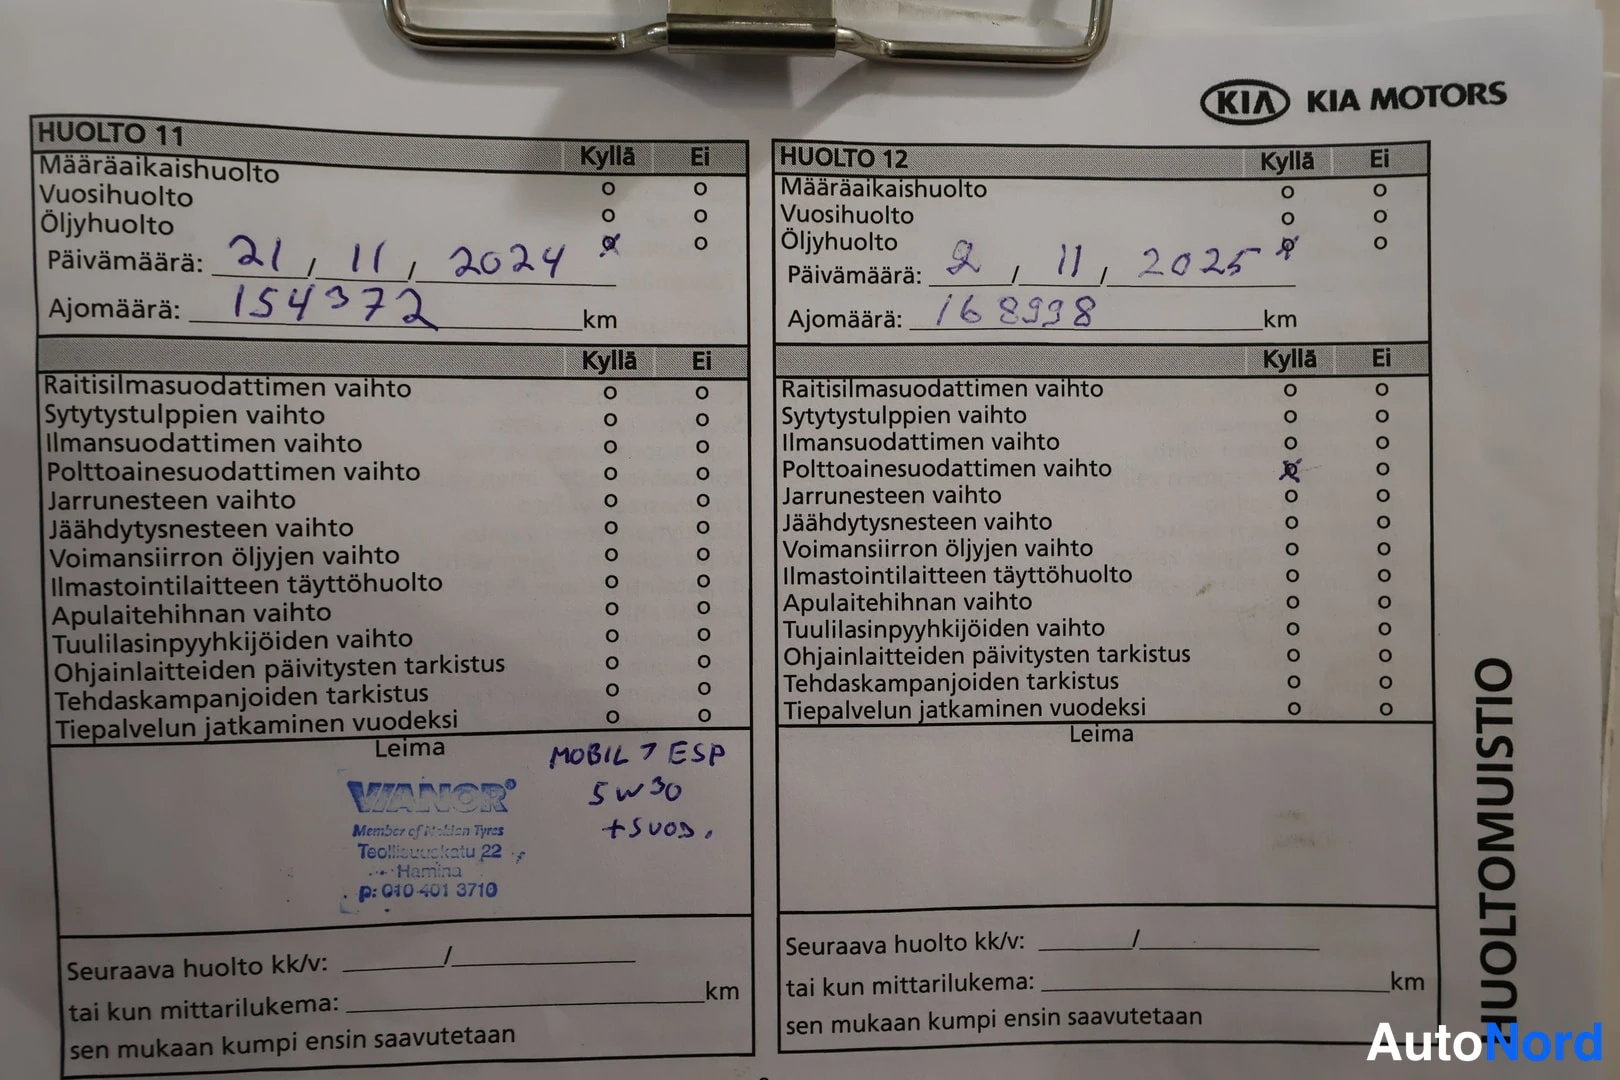 KIA KIA MOTORS
HUOLTO 11
Kyllä Ei
Määräaikaishuolto o o
Vuosihuolto o o
Öljyhuolto x o
Päivämäärä: 21 / 11 / 2024
Ajomäärä: 154372 km
Kyllä Ei
Raitisilmasuodattimen vaihto o o
Sytytystulppien vaihto o o
Ilmansuodattimen vaihto o o
Polttoainesuodattimen vaihto o o
Jarrunesteen vaihto o o
Jäähdytysnesteen vaihto o o
Voimansiirron öljyjen vaihto o o
Ilmastointilaitteen täyttöhuolto o o
Apulaitehihnan vaihto o o
Tuulilasinpyyhkijöiden vaihto o o
Ohjainlaitteiden päivitysten tarkistus o o
Tehdaskampanjoiden tarkistus o o
Tiepalvelun jatkaminen vuodeksi o o
Leima
MOBIL 1 ESP
5W30
+SUOD.
VIANOR®
Member of Nokian Tyres
Teollisuuskatu 22
Hamina
p: 010 401 3710
Seuraava huolto kk/v: ____/____
tai kun mittarilukema: ____ km
sen mukaan kumpi ensin saavutetaan
HUOLTO 12
Kyllä Ei
Määräaikaishuolto o o
Vuosihuolto o o
Öljyhuolto x o
Päivämäärä: 2 / 11 / 2025
Ajomäärä: 168998 km
Kyllä Ei
Raitisilmasuodattimen vaihto o o
Sytytystulppien vaihto o o
Ilmansuodattimen vaihto o o
Polttoainesuodattimen vaihto x o
Jarrunesteen vaihto o o
Jäähdytysnesteen vaihto o o
Voimansiirron öljyjen vaihto o o
Ilmastointilaitteen täyttöhuolto o o
Apulaitehihnan vaihto o o
Tuulilasinpyyhkijöiden vaihto o o
Ohjainlaitteiden päivitysten tarkistus o o
Tehdaskampanjoiden tarkistus o o
Tiepalvelun jatkaminen vuodeksi o o
Leima
Seuraava huolto kk/v: ____/____
tai kun mittarilukema: ____ km
sen mukaan kumpi ensin saavutetaan
HUOLTOMUISTIO
AutoNord